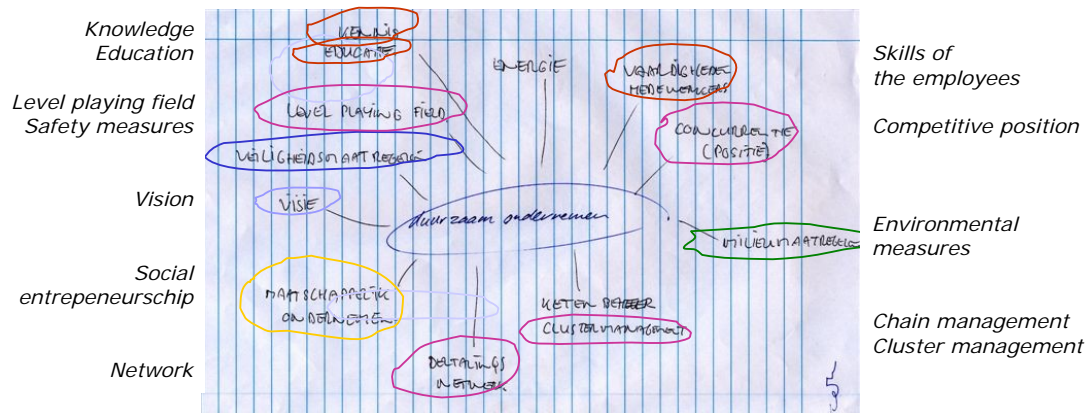 Knowledge
Education
Level playing field
Safety measures
Vision
Social
entrepeneurschip
Network
KENNIS
EDUCATIE
ENERGIE
VAARDIGHEDEN
MEDEWERKERS
LEVEL PLAYING FIELD
CONCURRENTIE
(POSITIE)
VEILIGHEIDSMAATREGELEN
VISIE
duurzaam ondernemen
MILIEUMAATREGELEN
MAATSCHAPPELIJK
ONDERNEMEN
KETEN BEHEER
CLUSTERMANAGEMENT
NETWERK
5
Skills of
the employees
Competitive position
Environmental
measures
Chain management
Cluster management